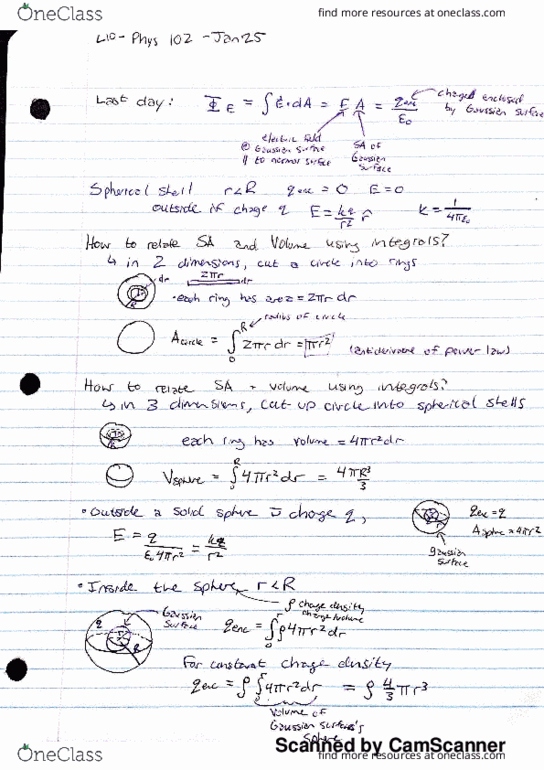 OneClass
find more resources at oneclass.com
L10 - Phys 102 - Jan 25
Last day: Φ_E = ∫E·dA = E A = q_enc/ε₀
charged enclosed by Gaussian surface
electric field @ Gaussian surface || to normal surface
SA of Gaussian surface
Spherical shell r<R q_enc = 0 E=0
outside if charge q E = kq/r² r̂ k = 1/4πε₀
How to relate SA and Volume using integrals?
↳ in 2 dimensions, cut a circle into rings
2πr
dr
dr
R
• each ring has area = 2πr dr
radius of circle
A circle = ∫₀ᴿ 2πr dr = πr²
(antiderivative of power law)
How to relate SA + volume using integrals?
↳ in 3 dimensions, cut up circle into spherical shells
each ring has volume = 4πr²dr
V sphere = ∫₀ᴿ 4πr²dr = 4πR³/3
• Outside a solid sphere c̄ charge q,
q_enc = q
A sphere = 4πr²
gaussian surface
E = q/ε₀4πr² = kq/r²
• Inside the sphere, r<R
ρ charge density
Gaussian Surface
q
R
q_enc = ∫₀ʳ ρ4πr²dr
For constant charge density
q_enc = ρ∫₀ʳ 4πr²dr = ρ 4/3 πr³
Volume of
Gaussian surface's
sphere
Scanned by CamScanner
OneClass
find more resources at oneclass.com